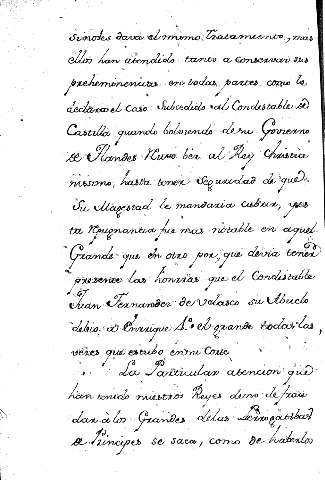 sinotes dava el mismo Tratamiento, mas
ellos han atendido tanto a conservar sus
preheminencias en todas partes como lo
declara el caso Subcedido al Condestable de
Castilla quando bolviendo de su Govierno
de Flandes reuso ber al Rey Christia
nissimo, hasta tener Seguridad de que
Su Magestad le mandaria cubrir, y es
ta repugnantia fue mas notable en aquel
Grande que en otro por, que devia tener
presente las honrras que el Condestable
Juan Fernandez de Velasco su Abuelo
debio a Enrrique 4.º el grande todas las,
veces que estubo en su Corte
La Particular atencion que
han tenido nuestros Reyes de no defrau
dar à los Grandes de las Prerrogatibas
de Principes se saca, como de haverlos